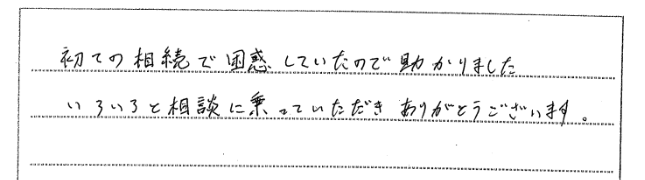 初ての相続で困惑していたので助かりました
いろいろと相談に乗っていただきありがとうございます。